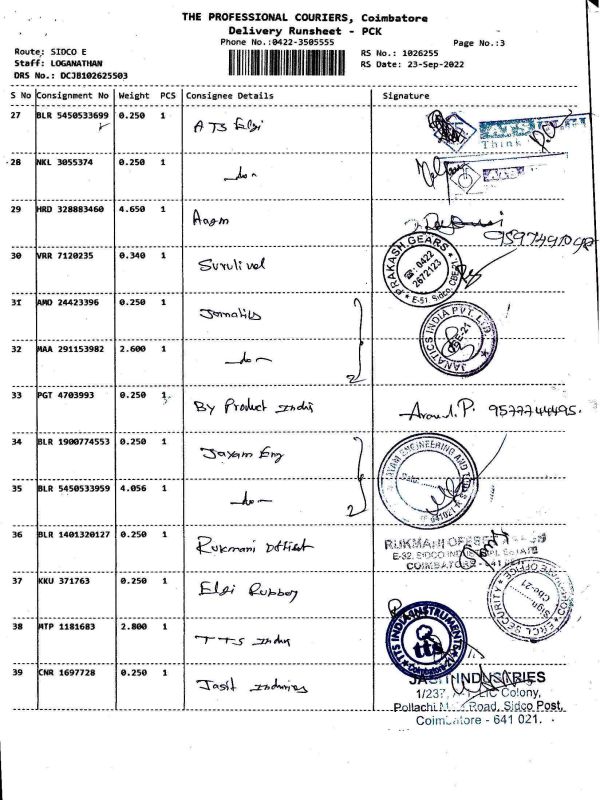 THE PROFESSIONAL COURIERS, Coimbatore
Delivery Runsheet - PCK
Phone No.:0422-3505555
Page No.:3
Route: SIDCO E
Staff: LOGANATHAN
DRS No.: DCJB102625503
RS No.: 1026255
RS Date: 23-Sep-2022
S No Consignment No Weight PCS Consignee Details Signature
27 BLR 5450533699 0.250 1 ATS Elgi
ATS ELGI
Think
28 NKL 3055374 0.250 1 -do-
ATS
29 HRD 328883460 4.650 1 Aagm
30 VRR 7120235 0.340 1 Surulivel
PRAKASH GEARS
☎: 0422
2672123
E-51, Sidco, CBE-21
31 AMD 24423396 0.250 1 Jamatics
JANATICS INDIA PVT. LTD.
CBE-21
32 MAA 291153982 2.600 1 -do-
33 PGT 4703993 0.250 1 By Product India
Aravind.P. 9577744495.
34 BLR 1900774553 0.250 1 Jayam Eng
JAYAM ENGINEERING AND TOOLS
Date:
641021
35 BLR 5450533959 4.056 1 -do-
36 BLR 1401320127 0.250 1 Rukmani Offset
RUKMANI OFFSET
E-32, SIDCO INDUSTRIAL ESTATE
COIMBATORE - 641 021
37 KKU 371763 0.250 1 Elgi Rubber
SECURITY
Sign
Cbe-21
38 MTP 1181683 2.800 1 TTS India
TTS INDIA INSTRUMENTS
tts
Coimbatore
39 CNR 1697728 0.250 1 Jasit Industries
JASIT INDUSTRIES
1/237, LIC Colony,
Pollachi Main Road, Sidco Post,
Coimbatore - 641 021.